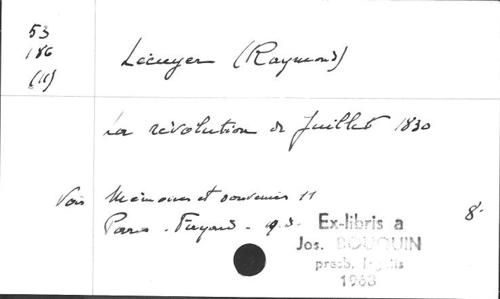 53
186
(11)
Lécuyer (Raymond)
La révolution de Juillet 1830
Voir Mémoires et souvenirs 11
Paris - Fayard - s.d. 8°
Ex-libris a
Jos. BOUQUIN
presb.
1963